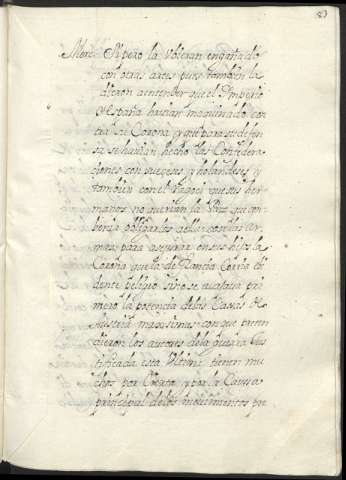 83
Merc. Si pero la Vbieran engañado
con otras artes pues tambien la
dieron a entender que el Imperio
y España hauian maquinado con
tra su Corona, y que para su defen
sa se hauian hecho las Confidera
ciones con suezeses y holandeses y
tambien con el Ragozi que sus her
manos no querian la Paz que con
benia obligarlos a ella con las ar
mas para asegurar en su hijo la
Corona que la de Francia Corria ebi
dente peligro si no se auasaua pri
mero la potencia de las Casas de
Austria maximas con que preten
dieron los autores de la guerra Jus
tificada esta Vltima tienen mu
chos por Cierta y por la Caussa
principal de los mouimientos pre